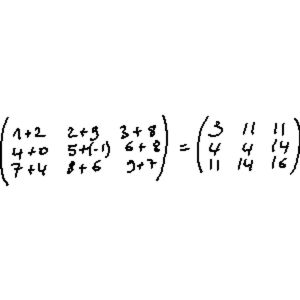 (1+2 2+9 3+8
4+0 5+(-1) 6+8
7+4 8+6 9+7) = (3 11 11
4 4 14
11 14 16)